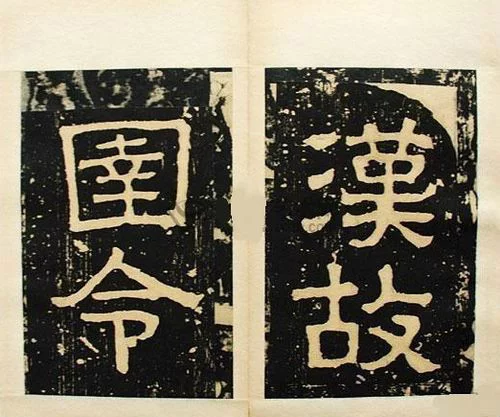 漢故
圉令